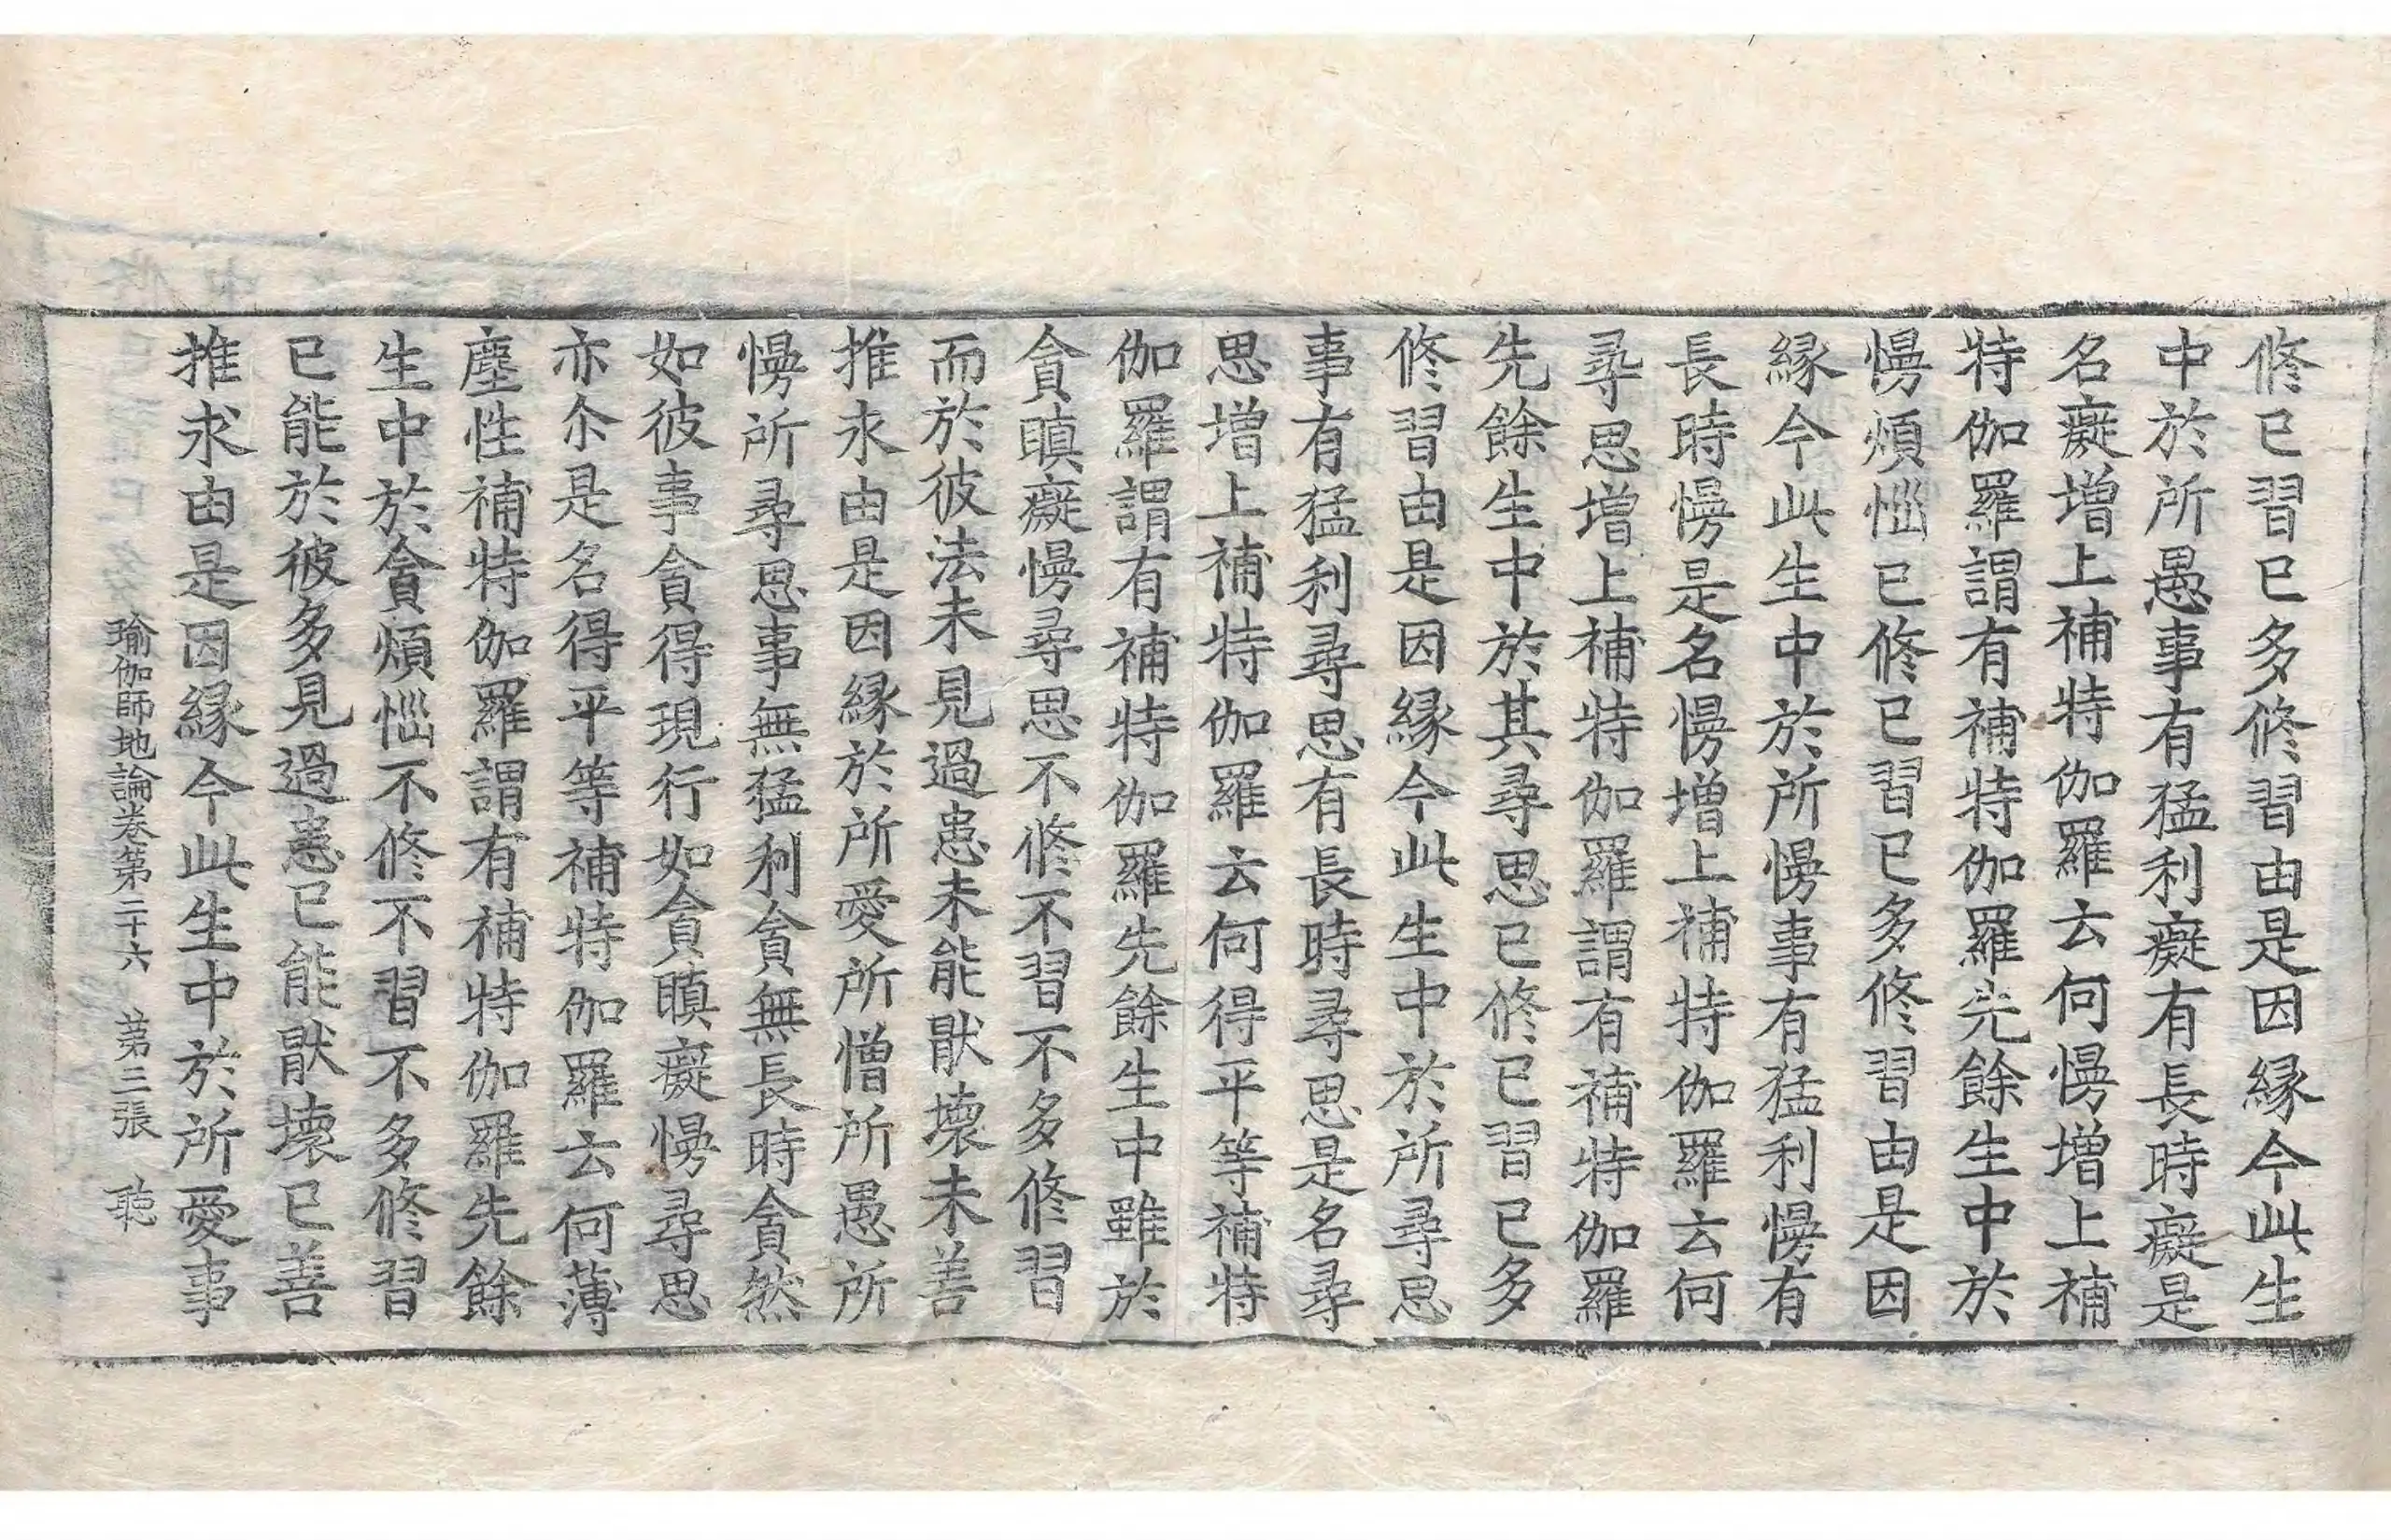 修已習已多修習由是因縁今此生
中於所愚事有猛利癡有長時癡是
名癡增上補特伽羅云何慢增上補
特伽羅謂有補特伽羅先餘生中於
慢煩惱已修已習已多修習由是因
縁今此生中於所慢事有猛利慢有
長時慢是名慢增上補特伽羅云何
尋思增上補特伽羅謂有補特伽羅
先餘生中於其尋思已修已習已多
修習由是因縁今此生中於所尋思
事有猛利尋思有長時尋思是名尋
思增上補特伽羅云何得平等補特
伽羅謂有補特伽羅先餘生中雖於
貪瞋癡慢尋思不修不習不多修習
而於彼法未見過患未能猒壞未善
推求由是因縁於所愛所憎所愚所
慢所尋思事無猛利貪無長時貪然
如彼事貪得現行如貪瞋癡慢尋思
亦尒是名得平等補特伽羅云何薄
塵性補特伽羅謂有補特伽羅先餘
生中於貪煩惱不修不習不多修習
已能於彼多見過患已能猒壞已善
推求由是因縁今此生中於所愛事
瑜伽師地論卷第二十六　第三張　聽